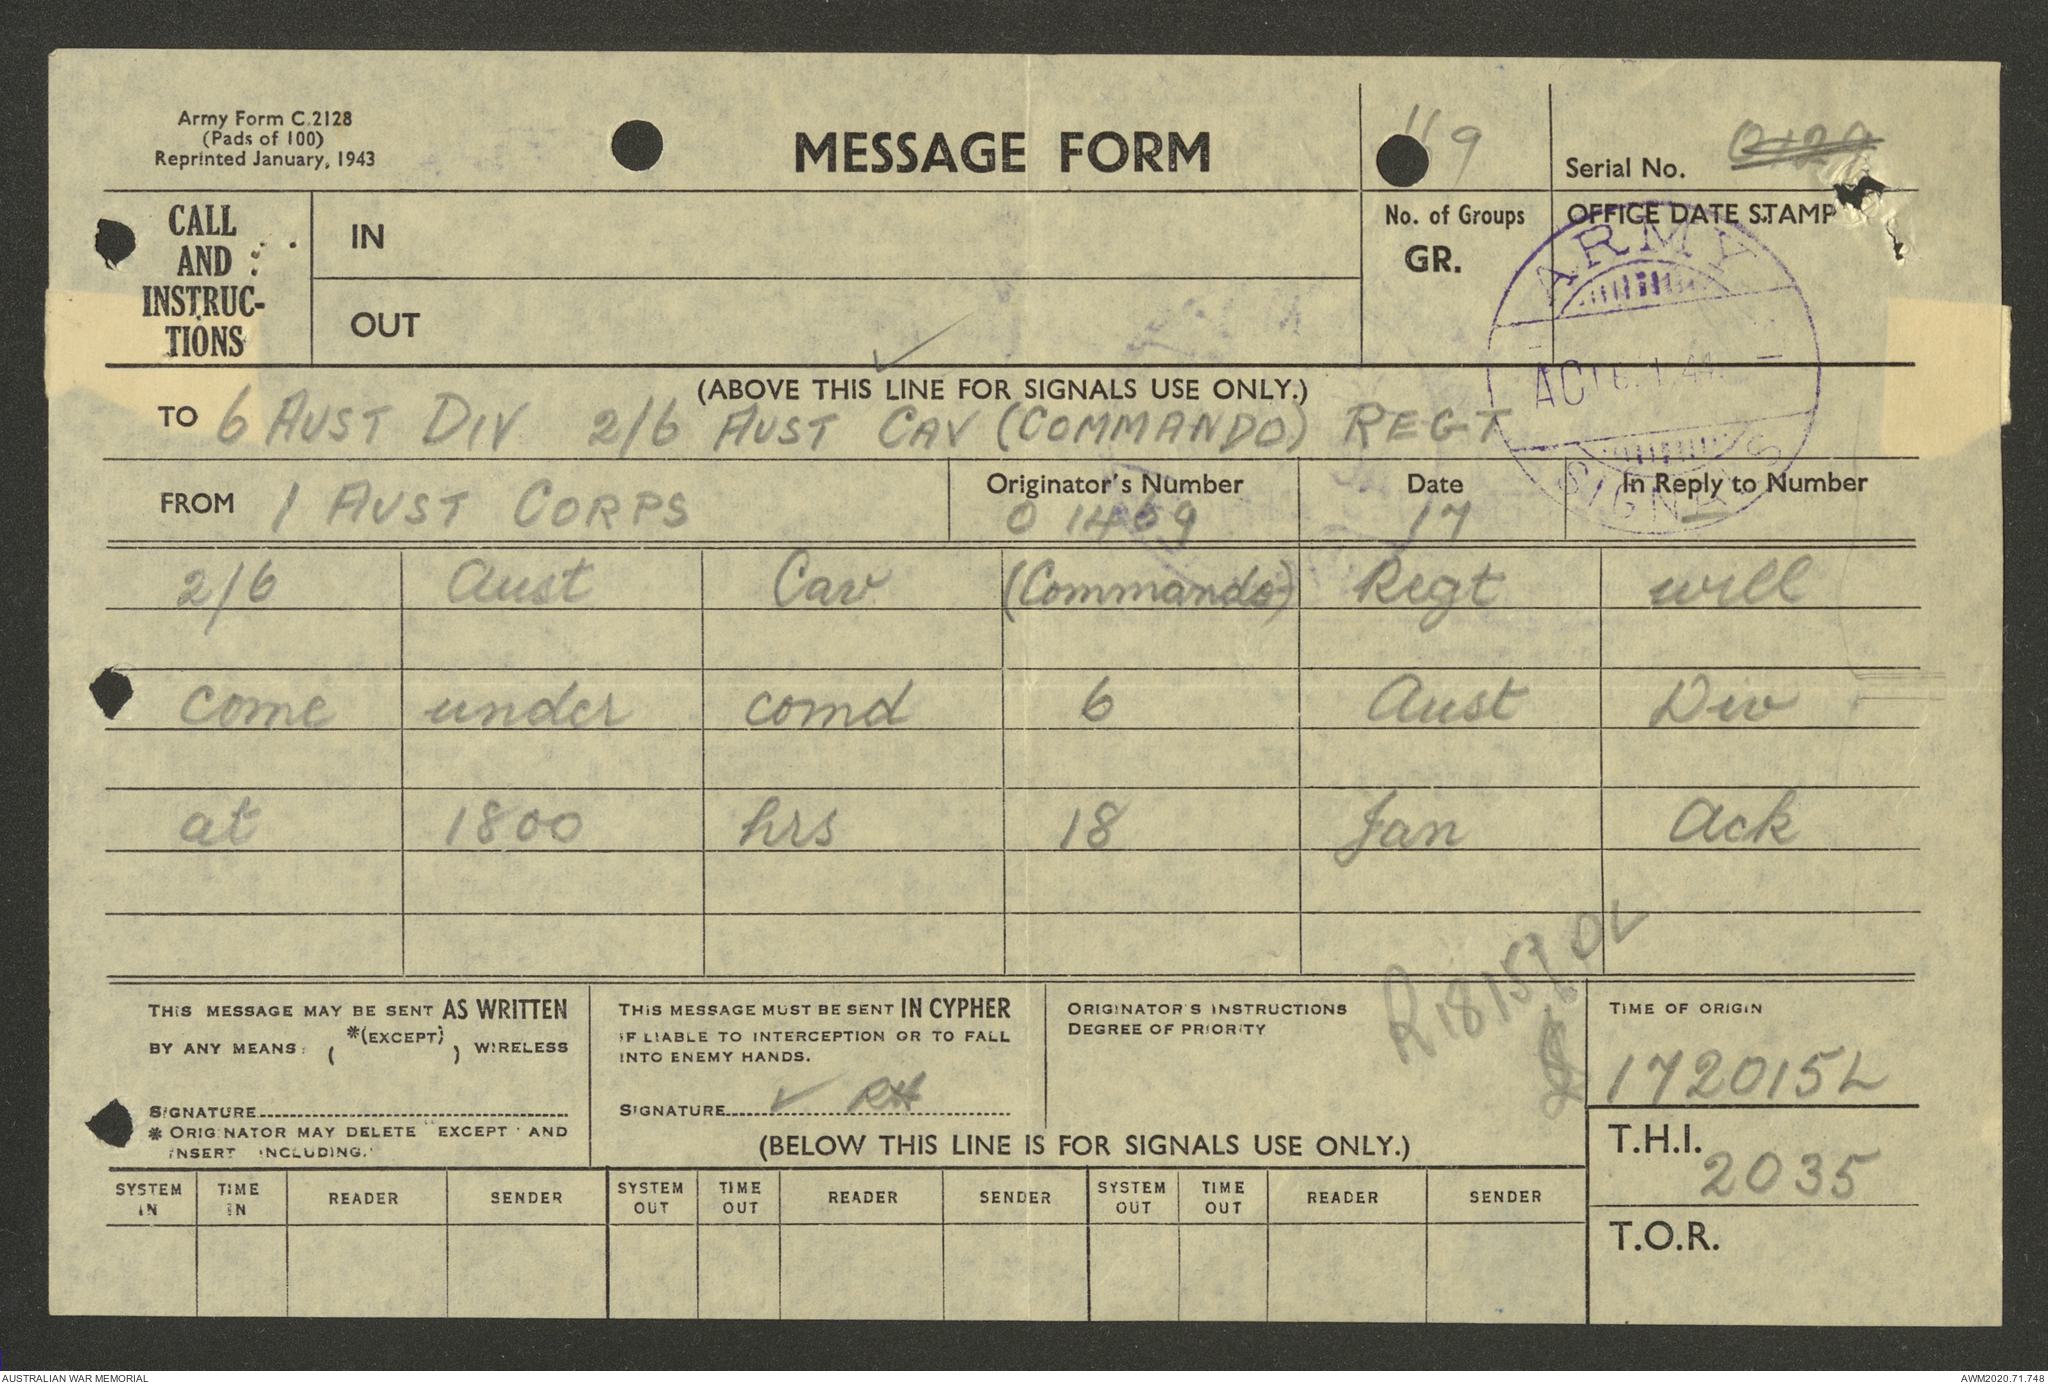 Army Form C.2128
(Pads of 100)
Reprinted January, 1943
MESSAGE FORM
9
Serial No.
CALL AND INSTRUC-TIONS
IN
OUT
No. of Groups
GR.
OFFICE DATE STAMP
ARMY
SIGNALS
(ABOVE THIS LINE FOR SIGNALS USE ONLY.)
TO 6 AUST DIV 2/6 AUST CAV (COMMANDO) REGT
FROM 1 AUST CORPS
Originator's Number
O 1409
Date
17
In Reply to Number
—
2/6 Aust Cav (Commando) Regt will
come under comd 6 Aust Div
at 1800 hrs 18 Jan Ack
THIS MESSAGE MAY BE SENT AS WRITTEN
BY ANY MEANS *(EXCEPT) WIRELESS
SIGNATURE
* ORIGINATOR MAY DELETE "EXCEPT" AND
INSERT INCLUDING.
THIS MESSAGE MUST BE SENT IN CYPHER
IF LIABLE TO INTERCEPTION OR TO FALL
INTO ENEMY HANDS.
SIGNATURE
ORIGINATOR'S INSTRUCTIONS
DEGREE OF PRIORITY
TIME OF ORIGIN
172015L
(BELOW THIS LINE IS FOR SIGNALS USE ONLY.)
T.H.I.
2035
T.O.R.
SYSTEM IN TIME IN READER SENDER SYSTEM OUT TIME OUT READER SENDER SYSTEM OUT TIME OUT READER SENDER
AUSTRALIAN WAR MEMORIAL
AWM2020.71.748